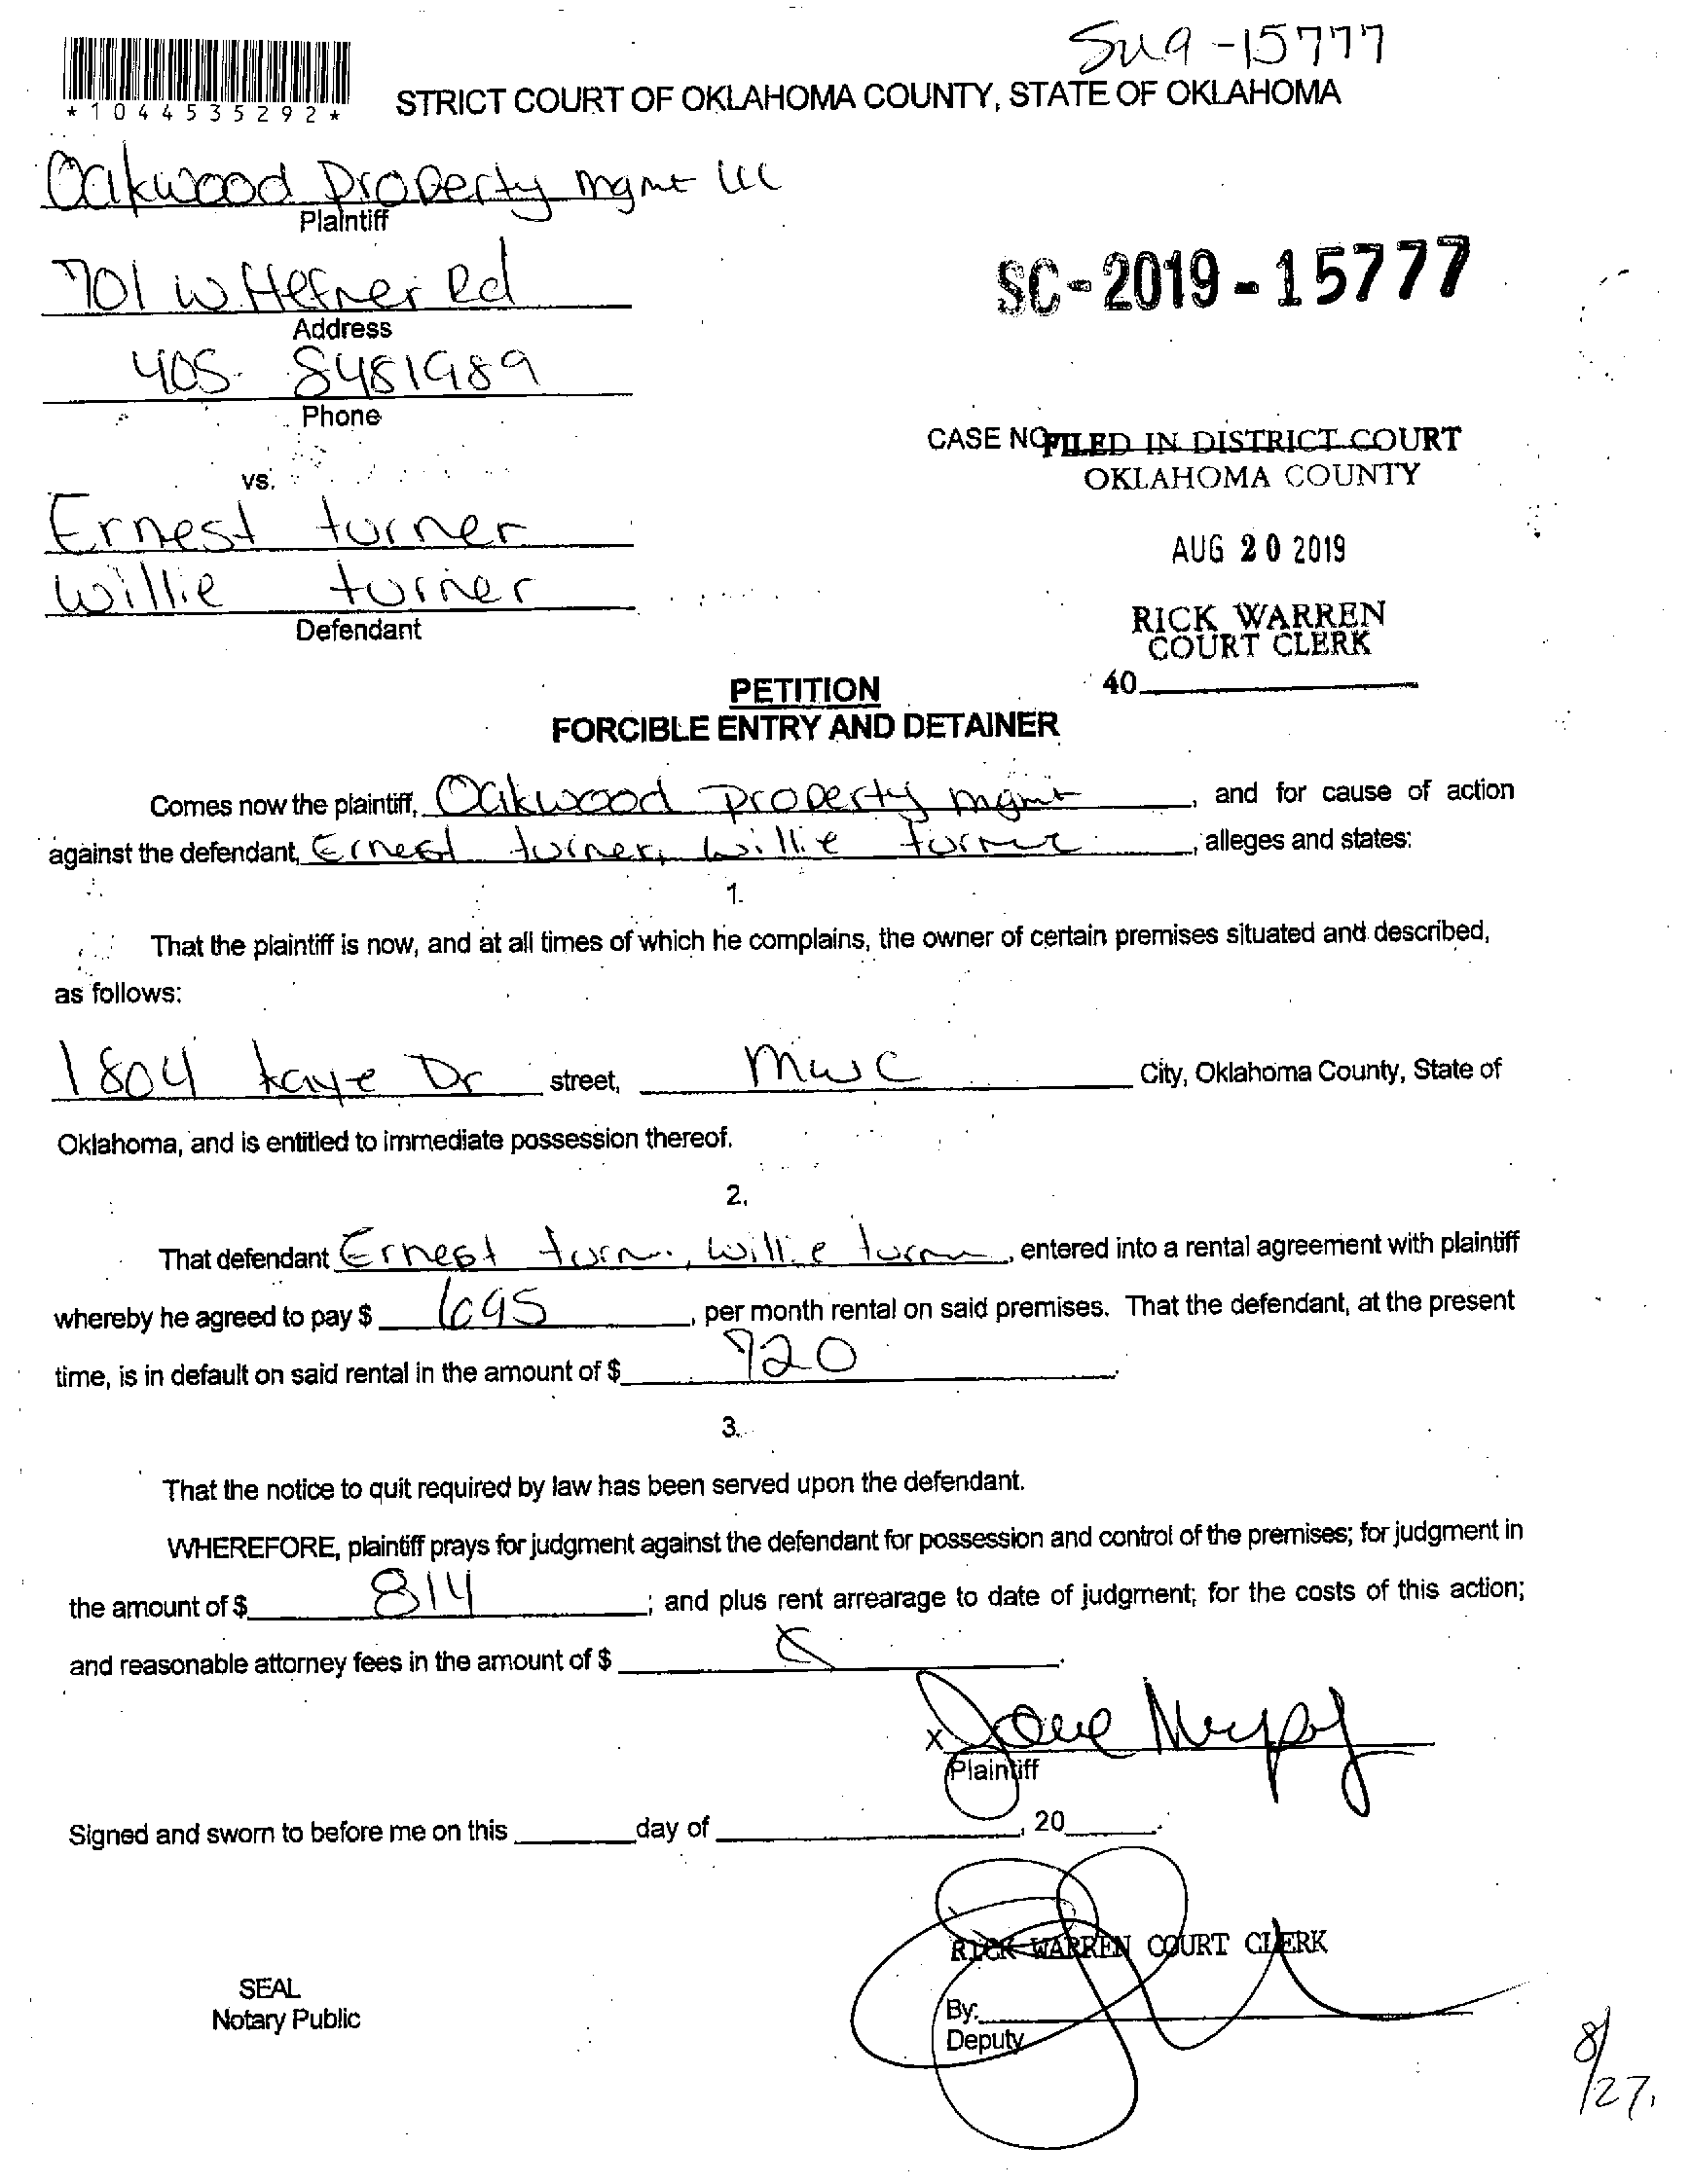 Su9-15777
*1044535292*
STRICT COURT OF OKLAHOMA COUNTY, STATE OF OKLAHOMA
Oakwood Property Mgmt LLC
Plaintiff
701 W Hefner Rd
SC-2019-15777
Address
405-8481989
Phone
CASE NO
FILED IN DISTRICT COURT
OKLAHOMA COUNTY
vs.
Ernest turner
AUG 20 2019
Willie turner
Defendant
RICK WARREN
COURT CLERK
40
PETITION
FORCIBLE ENTRY AND DETAINER
Comes now the plaintiff, Oakwood property mgmt, and for cause of action
against the defendant, Ernest turner, Willie turner, alleges and states:
1.
That the plaintiff is now, and at all times of which he complains, the owner of certain premises situated and described,
as follows:
1804 Kaye Dr street, MWC City, Oklahoma County, State of
Oklahoma, and is entitled to immediate possession thereof.
2.
That defendant Ernest turn., Willie turner, entered into a rental agreement with plaintiff
whereby he agreed to pay $ 695, per month rental on said premises. That the defendant, at the present
time, is in default on said rental in the amount of $ 920.
3.
That the notice to quit required by law has been served upon the defendant.
WHEREFORE, plaintiff prays for judgment against the defendant for possession and control of the premises; for judgment in
the amount of $ 814; and plus rent arrearage to date of judgment; for the costs of this action;
and reasonable attorney fees in the amount of $
x
Plaintiff
Signed and sworn to before me on this day of , 20 .
RICK WARREN COURT CLERK
SEAL
Notary Public
By:
Deputy
8/27.